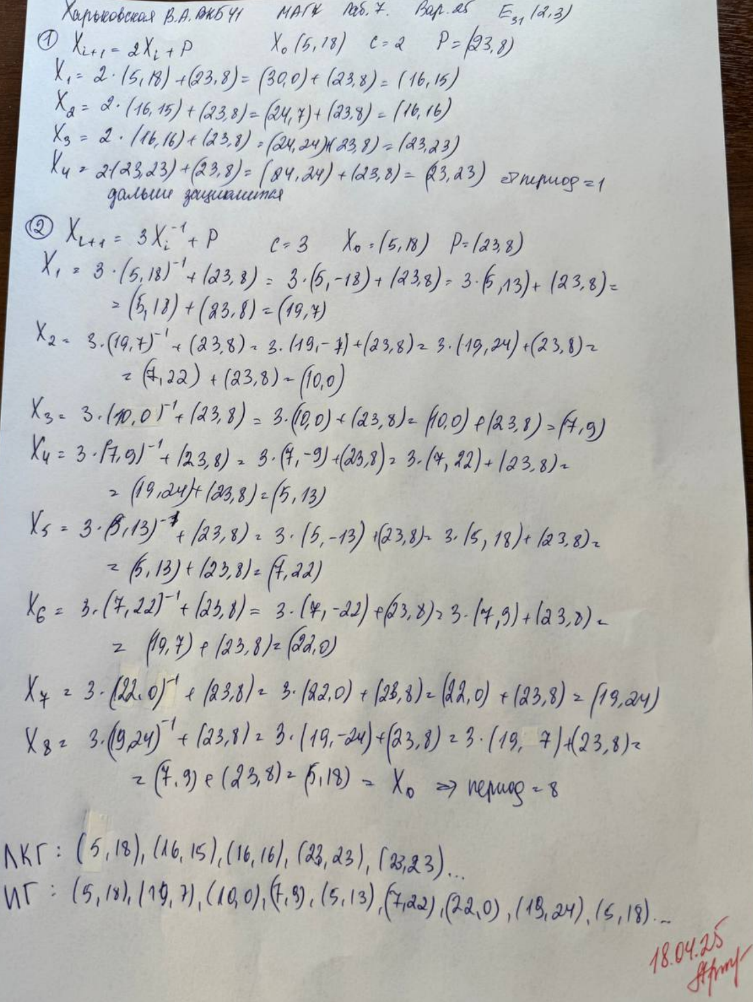 Харьковская В.А. ВКБ41 МАГК Лаб. 7. Вар. 25 E₃₁(2,3)
① Xᵢ₊₁ = 2Xᵢ + P X₀(5,18) c = 2 P = (23,8)
X₁ = 2·(5,18)+(23,8) = (30,0)+(23,8) = (16,15)
X₂ = 2·(16,15)+(23,8) = (24,7)+(23,8) = (16,16)
X₃ = 2·(16,16)+(23,8) = (24,24)+(23,8) = (23,23)
X₄ = 2(23,23)+(23,8) = (24,24)+(23,8) = (23,23) ⇒ период = 1
дальше зациклится
② Xᵢ₊₁ = 3Xᵢ⁻¹ + P c = 3 X₀ = (5,18) P = (23,8)
X₁ = 3·(5,18)⁻¹+(23,8) = 3·(5,-18)+(23,8) = 3·(5,13)+(23,8) =
= (5,18)+(23,8) = (19,7)
X₂ = 3·(19,7)⁻¹+(23,8) = 3·(19,-7)+(23,8) = 3·(19,24)+(23,8) =
= (7,22)+(23,8) = (10,0)
X₃ = 3·(10,0)⁻¹+(23,8) = 3·(10,0)+(23,8) = (10,0)+(23,8) = (7,9)
X₄ = 3·(7,9)⁻¹+(23,8) = 3·(7,-9)+(23,8) = 3·(7,22)+(23,8) =
= (19,24)+(23,8) = (5,13)
X₅ = 3·(5,13)⁻¹+(23,8) = 3·(5,-13)+(23,8) = 3·(5,18)+(23,8) =
= (5,13)+(23,8) = (7,22)
X₆ = 3·(7,22)⁻¹+(23,8) = 3·(7,-22)+(23,8) = 3·(7,9)+(23,8) =
= (19,7)+(23,8) = (22,0)
X₇ = 3·(22,0)⁻¹+(23,8) = 3·(22,0)+(23,8) = (22,0)+(23,8) = (19,24)
X₈ = 3·(19,24)⁻¹+(23,8) = 3·(19,-24)+(23,8) = 3·(19, 7)+(23,8) =
= (7,9)+(23,8) = (5,18) = X₀ ⇒ период = 8
ЛКГ: (5,18), (16,15), (16,16), (23,23), (23,23)...
ИГ: (5,18), (19,7), (10,0), (7,9), (5,13), (7,22), (22,0), (19,24), (5,18)...
18.04.25